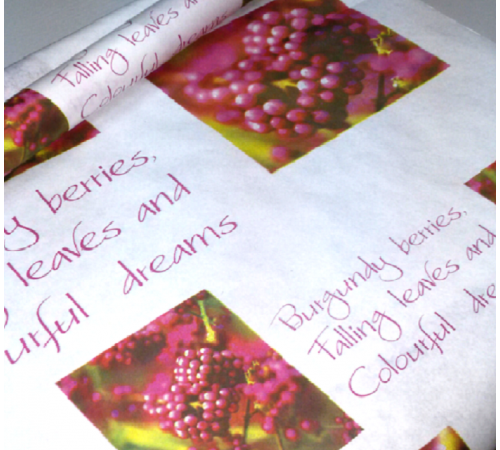 Falling leaves
Colourful dreams
berries,
leaves and
dreams
Burgundy berries,
Falling leaves and
Colourful